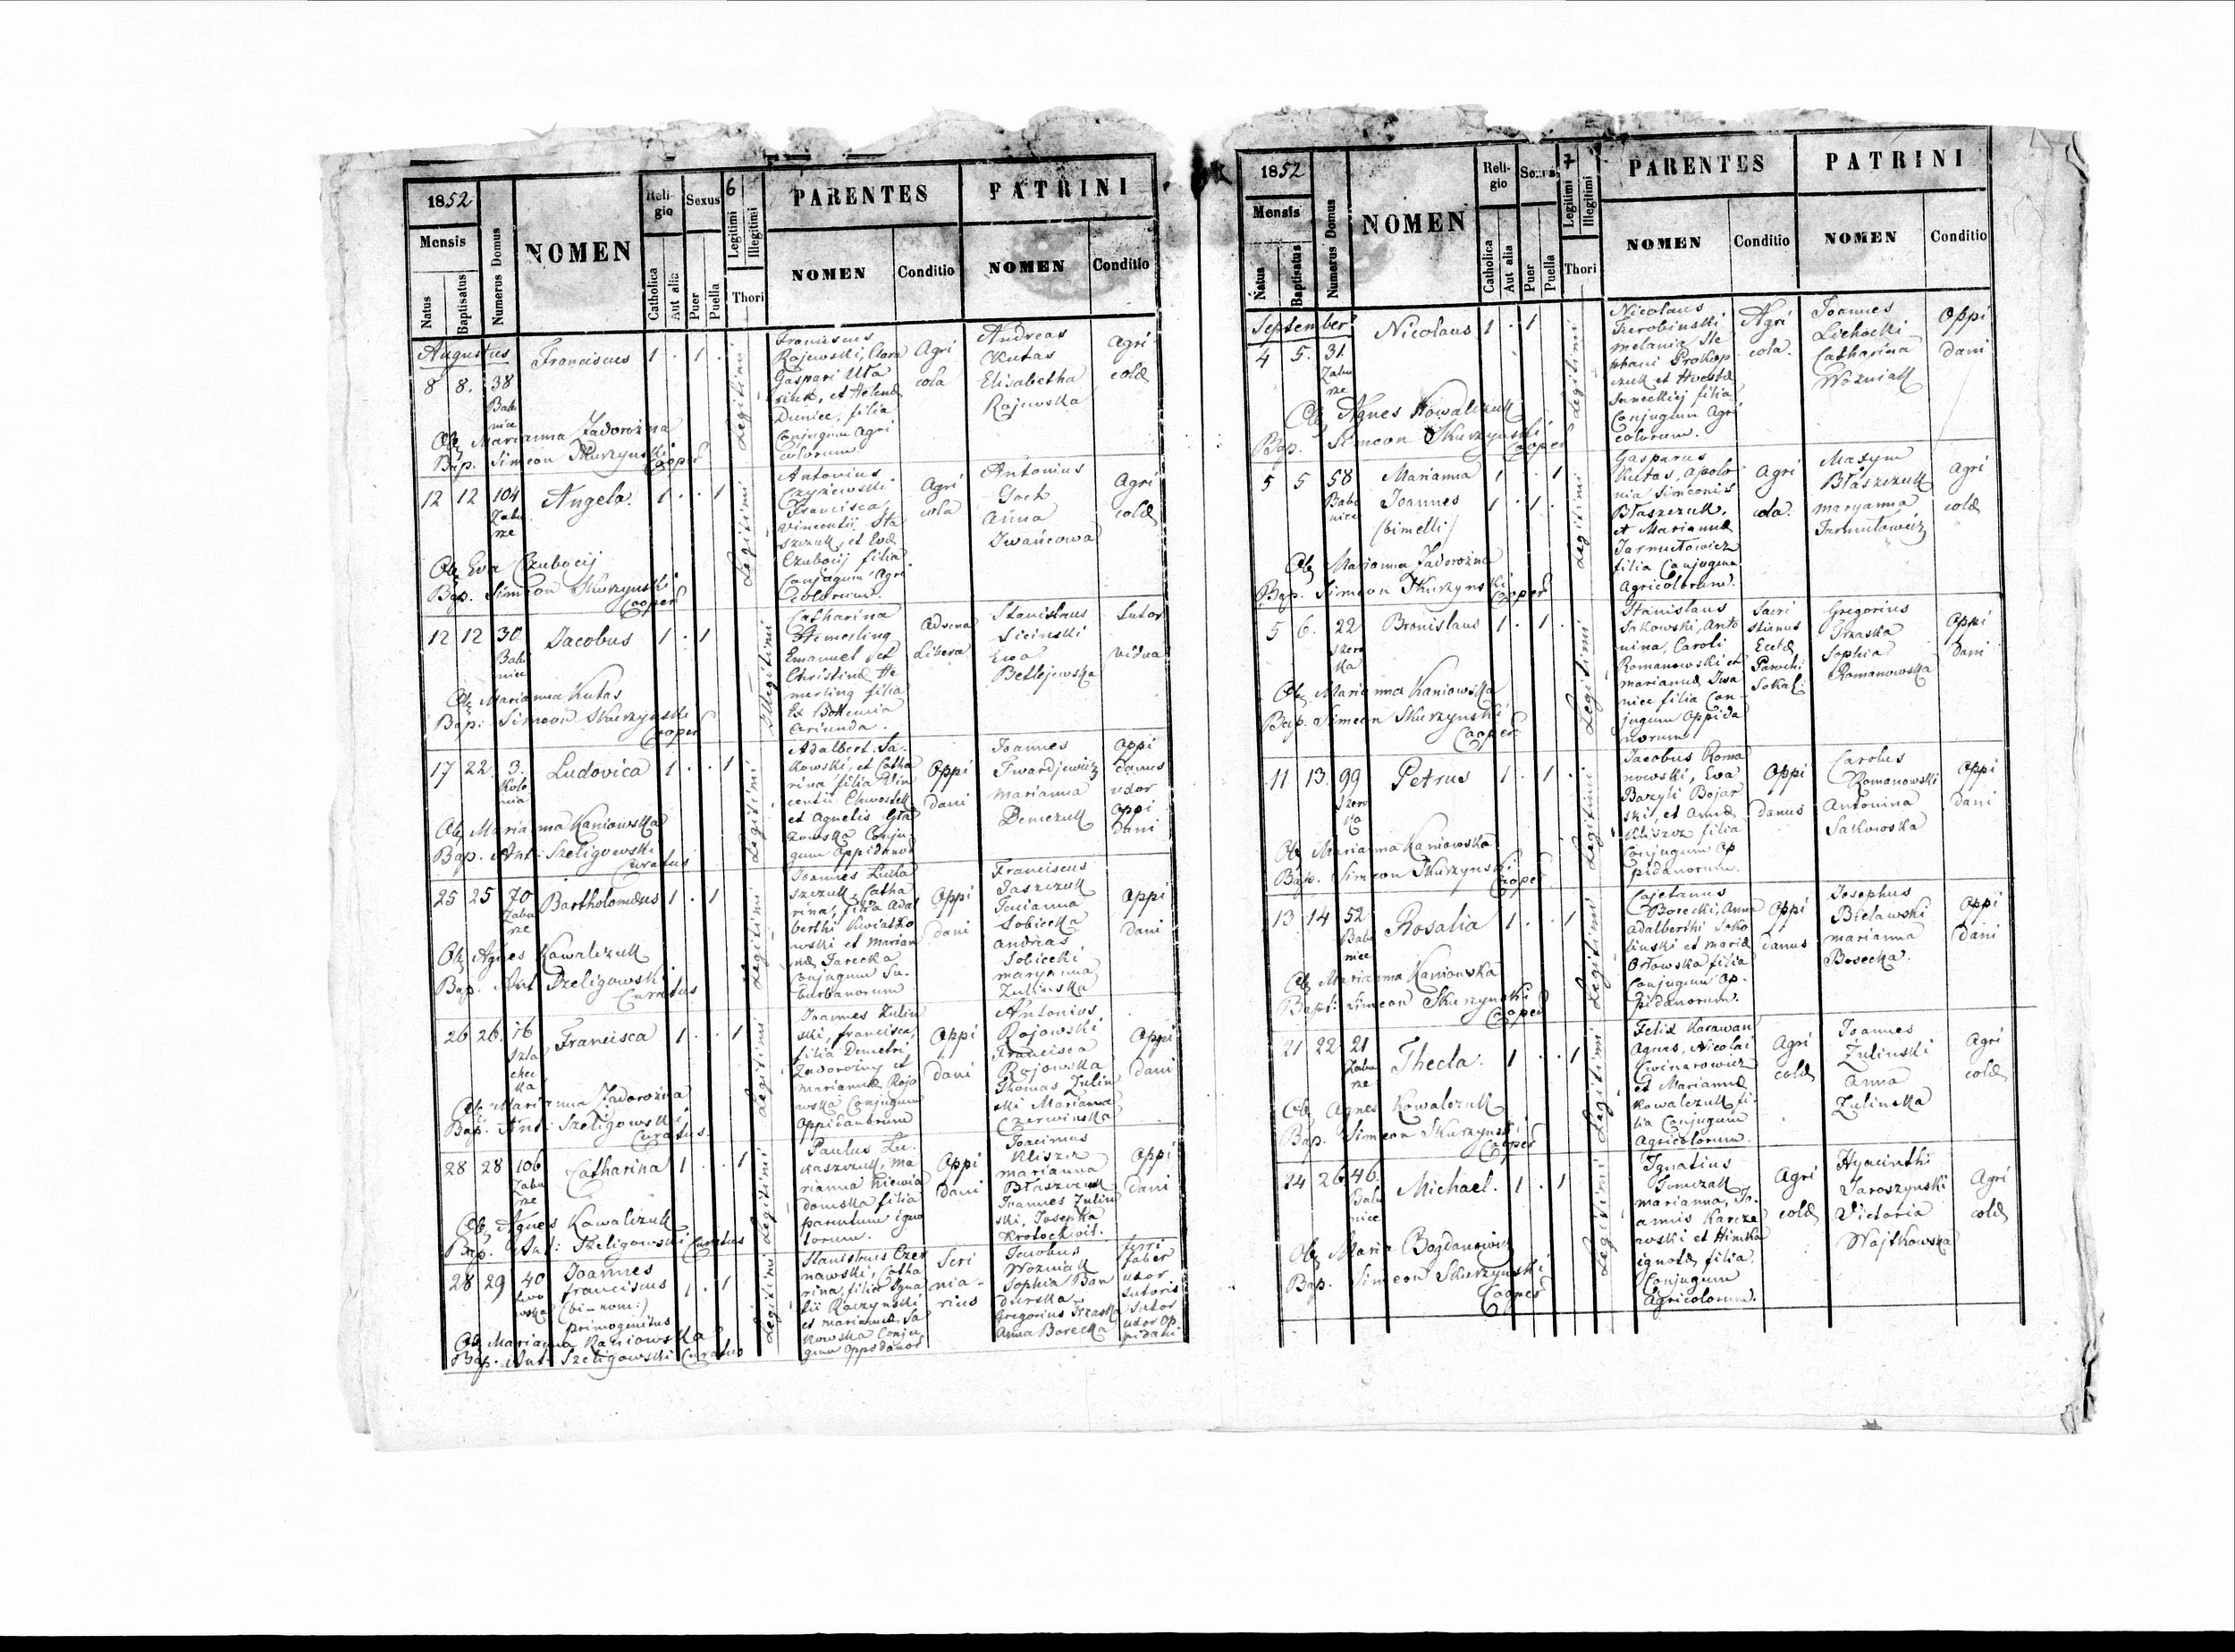 1852
6
Mensis
Natus
Baptisatus
Numerus Domus
NOMEN
Religio
Catholica
Aut alia
Sexus
Puer
Puella
Legitimi
Illegitimi
Thori
PARENTES
NOMEN
Conditio
PATRINI
NOMEN
Conditio
Augustus
8 8. 38 Franciscus 1 . 1 .
Babi
nice
Legitimi
Franciscus
Rajewski, Clara
Gaspari
et Helenæ
Duniec, filia
Conjugum Agri
colorum
Agri
cola
Andreas
Kutas
Elisabetha
Rajewska
Agri
colæ
Ob. Marianna Zadorożna
Bap. Simeon Skurzynski
Cooper
12 12 104 Angela. 1 . . 1
Zabu
rze
Legitimi
Antonius
Czyżewski
Francisca,
Vincentii Sta
szczuk, et Evæ
Czubocij filia
Conjugum Agri
colorum.
Agri
cola
Antonius
Goch
Anna
Iwańcowa
Agri
colæ
Ob. Eva Czubocij
Bap. Simeon Skurzynski
Cooper
12 12 30 Jacobus 1 . 1
Babi
nice
Illegitimi
Catharina
Hemerling
Emanuel et
Christinæ He
merling filia
Ex Bohemia
oriunda.
Advena
Libera
Stanislaus
Sicinski
Ewa
Betlejewska
Sutor
vidua
Ob. Marianna Kutas
Bap: Simeon Skurzynski
Cooper
17 22. 3. Ludovica 1 . . 1
Kolo
nia
Legitimi
Adalbert. Sa-
kowski, et Catha
rina filia Vin
centii Chwostek
et Agnetis
Conju-
gum Oppidanor
Oppi
dani
Joannes
Twardjewicz
Marianna
Demczuk
Oppi
danus
uxor
Oppi
dani
Ob. Marianna Kaniowska
Bap. Ant: Szeligowski
Curatus
25 25 70 Bartholomæus 1 . 1
Zabu
rze
Legitimi
Joannes Lucka
szczuk, Catha
rina, filia Adal
berthi Kwiatko
wski et Marian
næ Jarecka
Conjugum Su-
burbanorum
Oppi
dani
Franciscus
Jaszczuk
Sobiecka
Andreas
Sobiecki
Maryanna
Zulinska
Oppi
dani
Ob. Agnes Kowalczuk
Bap. Ant Szeligowski
Curatus
26 26. 16 Francisca 1 . . 1
Szla
chec
ka
Legitimi
Joannes Zulin
ski, Francisca,
filia Demetri
Zadorożny et
Mariannæ Rajo
wska Conjugum
Oppidanorum
Oppi
dani
Antonius
Rojowski
Francisca
Rojowska
Thomas Zulin
ski Marianna
Czerwinska
Oppi
dani
Ob. Marianna Zadorożna
Bap. Ant: Szeligowski
Curatus.
28 28 106 Catharina 1 . . 1
Zabu
rze
Legitimi
Paulus Lu-
kaszczuk, Ma
rianna niewia
domska filia
parentum igno
torum.
Oppi
dani
Joacimus
Kliszcz
Marianna
Błaszczuk
Joannes Zulin
ski, Josepha
Krotochwil.
Oppi
dani
Ob. Agnes Kowalczuk
Bap. Ant: Szeligowski Curatus
28 29 40 Joannes 1 . 1
Lwo
wska
Franciscus
(bi-nom:)
primogenitus
Legitimi
Stanislaus Czer
nawski, Catha
rina, filia Igna
tii Raczynski
et Mariannæ Sa
kowska Conju
gum Oppidanor
Scri
nia-
rius
Jacobus
Wozniak
Sophia Ban
durska
Gregorius Trzaska
Anna Borecka
ferri
faber
uxor
Sutoris
Sutor
uxor Op
pidani
Ob. Marianna Kaniowska
Bap. Ant: Szeligowski Curatus
1852
7
Mensis
Natus
Baptisatus
Numerus Domus
NOMEN
Religio
Catholica
Aut alia
Sexus
Puer
Puella
Legitimi
Illegitimi
Thori
PARENTES
NOMEN
Conditio
PATRINI
NOMEN
Conditio
September
4 5. 31. Nicolaus 1 . 1
Zabu
rze
Legitimi
Nicolaus
Melania Ste
phani Prokop
czuk et
filia
Conjugum Agri
colorum.
Agri
cola.
Joannes
Lichocki
Catharina
Wozniak
Oppi
dani
Ob. Agnes Kowalczuk
Bap. Simeon Skurzynski
Cooper
5 5 58 Marianna 1 . . 1
Babi
nice
Joannes 1 . 1 .
(bimelli)
Legitimi
Gasparus
Kutas, Apolo
nia Simeonis
Błaszczuk,
et Mariannæ
Jarmutowicz
filia Conjugum
Agricolorum.
Agri
cola.
Maxym
Błaszczuk
Maryanna
Jarmutowicz
Agri
colæ
Ob. Marianna Zadorożna
Bap. Simeon Skurzynski
Cooper
5 6. 22 Bronislaus 1 . 1 .
Szero
ka
Legitimi
Stanislaus
Sakowski, Anto
nina, Caroli
Romanowski et
Mariannæ Iwa
nice filia Con-
jugum Oppida
norum
Sacri
stianus
Eccles
Paroch:
Sokal:
Gregorius
Trzaska
Sophia
Romanowska
Oppi
dani
Ob. Marianna Kaniowska
Bap. Simeon Skurzynski
Cooper
11 13. 99 Petrus 1 . 1 .
Szero
ka
Legitimi
Jacobus Roma
nowski, Ewa
Bazyli Bojar
ski, et Annæ
Kliszcz filia
Conjugum Op
pidanorum.
Oppi
danus
Carolus
Romanowski
Antonina
Sakowska
Oppi
dani
Ob. Marianna Kaniowska
Bap. Simeon Skurzynski
Cooper
13 14 52 Rosalia 1 . . 1
Babi
nice
Legitimi
Cajetanus
Borecki, Anna
Adalberthi Soko
linski et Mariæ
Orłowska filia
Conjugum Op-
pidanorum.
Oppi
danus
Josephus
Bielawski
Marianna
Bosecka.
Oppi
dani
Ob. Marianna Kaniowska
Bap: Simeon Skurzynski
Cooper
21 22 21 Thecla. 1 . . 1
Zabu
rze
Legitimi
Felix Karawan
Agnes, Nicolai
Cwinarowicz
et Mariannæ
Kowalczuk fi-
lia Conjugum
Agricolorum.
Agri
colæ
Joannes
Zulinski
Anna
Zulinska
Agri
colæ
Ob. Agnes Kowalczuk
Bap. Simeon Skurzynski
Cooper
24 26 46. Michael. 1 . 1
Babi
nice
Legitimi
Ignatius
Tomczak
Marianna, Jo-
annis Karcze
wski et Himka
ignotæ filia,
Conjugum
Agricolorum.
Agri
colæ
Hyacinthi
Jaroszynski
Victoria
Wajtkowska
Agri
colæ
Ob. Maria Bogdanowicz
Bap. Simeon Skurzynski
Cooper